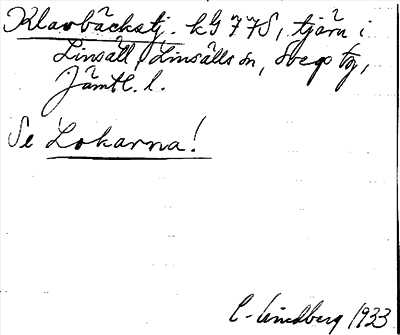 Klavbäckstj. kG 77S, tjärn i
Linsäll, Linsälls sn, Svegs tg,
Jämtl. l.
Se Lokarna!
C. Lindberg 1933